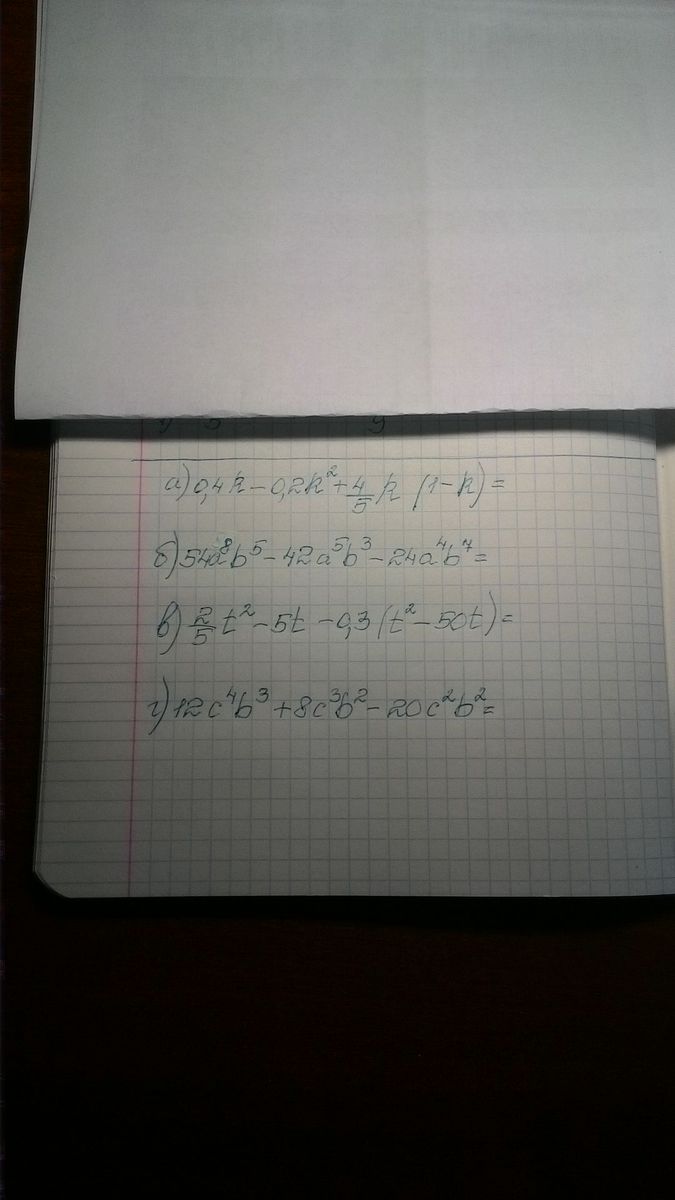 а) 0,4k - 0,2k² + 4/5 k (1 - k) =
б) 54a⁸b⁵ - 42a⁵b³ - 24a⁴b⁷ =
в) 2/5 t² - 5t - 0,3 (t² - 50t) =
г) 12c⁴b³ + 8c³b² - 20c²b² =